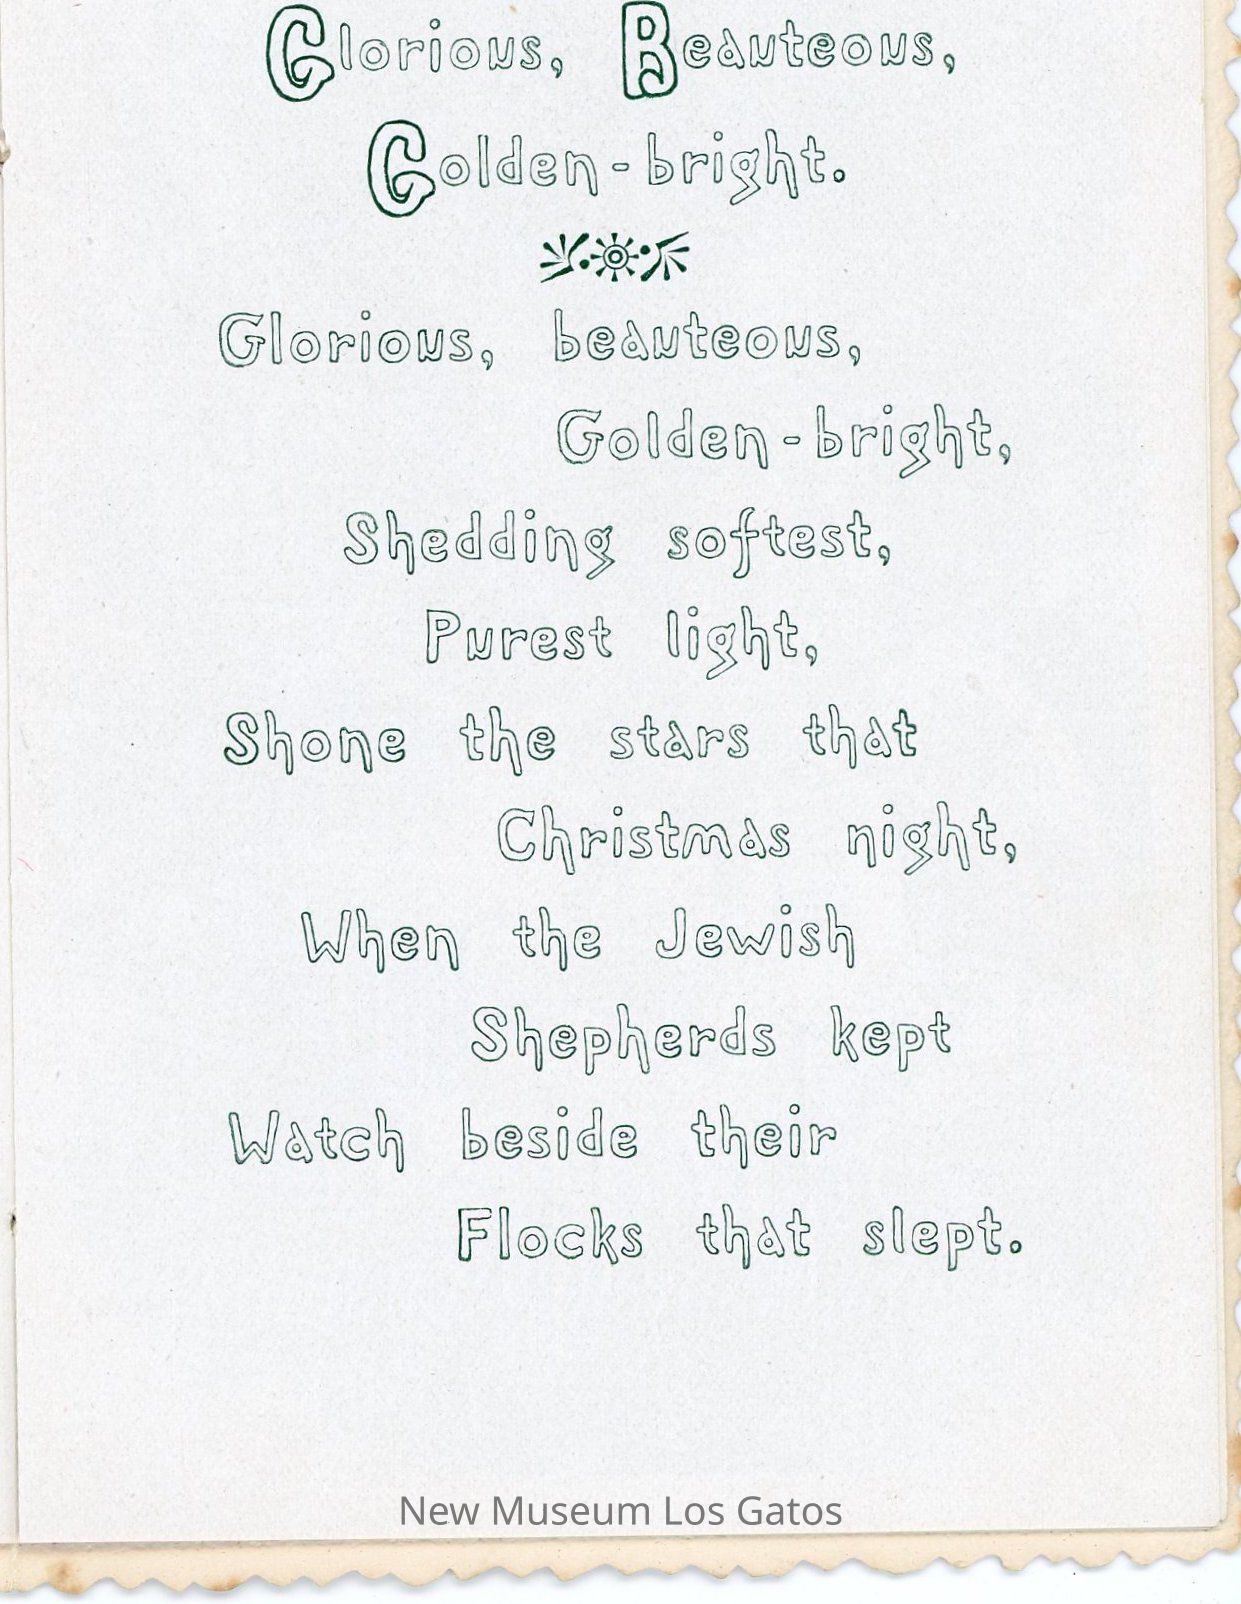 Glorious, Beauteous,
Golden-bright.
Glorious, beauteous,
Golden-bright,
Shedding softest,
Purest light,
Shone the stars that
Christmas night,
When the Jewish
Shepherds kept
Watch beside their
Flocks that slept.
New Museum Los Gatos